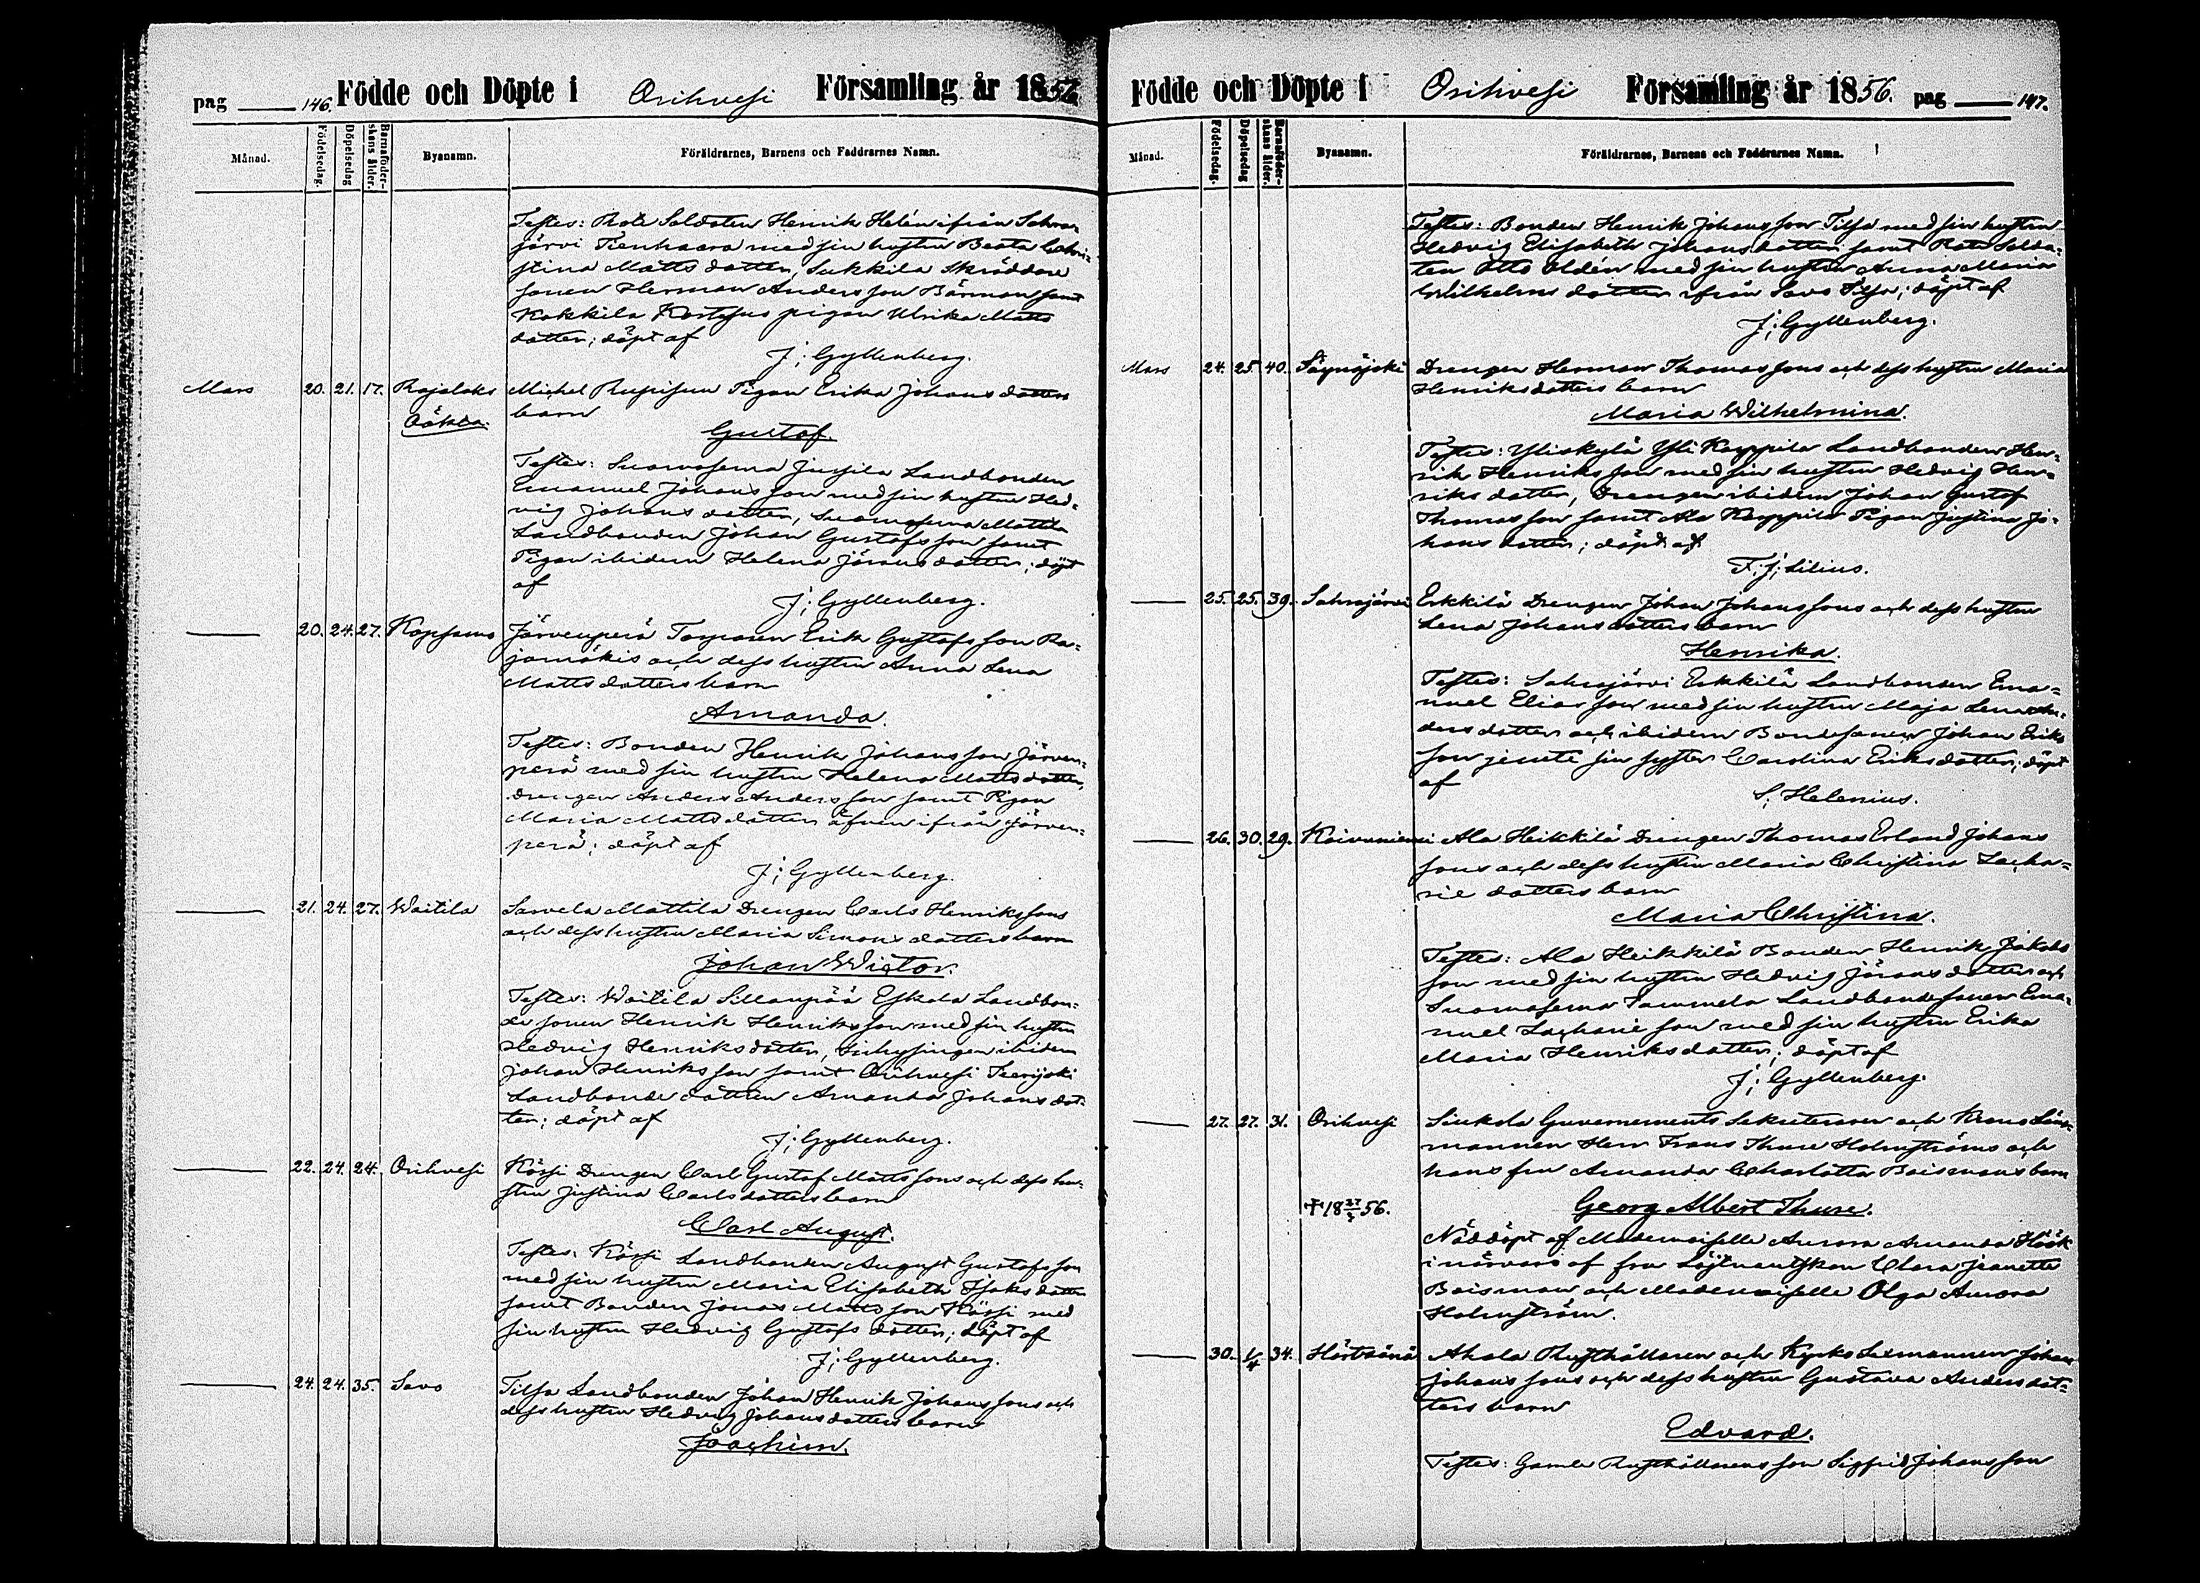 pag 146. Födde och Döpte i Orihvesi Församling år 1856.
Månad. Födelsedag. Döpelsedag Barnaföderskans ålder. Byanamn. Föräldrarnes, Barnens och Faddrarnes Namn.
Testes: Rote Soldaten Henrik Helén ifrån Sahra-
järvi Tienhaara med sin hustru Beata Chri-
stina Mattsdotter, Sukkila Skräddare
sonen Herman Andersson Bärman samt
Kakkila pigan Ulrika Matts
dotter; döpt af
J; Gyllenberg.
Mars 20. 21. 17. Rajalaks Michel Pigan Erika Johansdotters
barn
Gustaf.
Testes: Suomasema Jussila Landbonden
Emanuel Johansson med sin hustru Hed-
vig Johansdotter, Suomasema Mattila
Landbonden Johan Gustafsson samt
Pigan ibidem Helena Jöransdotter; döpt
af
J; Gyllenberg.
20. 24. 27. Kopsamo Järvenperä Torparen Erik Gustafsson Ra-
jamäkis och dess hustru Anna Lena
Mattsdotters barn
Amanda.
Testes: Bonden Henrik Johansson Järven-
perä med sin hustru Helena Mattsdotter,
Drengen Anders Andersson samt Pigan
Maria Mattsdotter äfven ifrån Järven-
perä; döpt af
J; Gyllenberg.
21. 24. 27. Waitila Sarvela Mattila Drengen Carls Henrikssons
och dess hustru Maria Simonsdotters barn
Johan Wictor.
Testes: Waitila Sillanpää Eskola Landbon-
de sonen Henrik Henriksson med sin hustru
Hedvig Henriksdotter, Inhysingen ibidem
Johan Henriksson samt Orihvesi Teerijoki
Landbonde dottren Amanda Johansdot-
ter; döpt af
J; Gyllenberg.
22. 24. 24. Orihvesi Kössi Drengen Carl Gustaf Mattssons och dess hu-
stru Justina Carlsdotters barn
Carl August.
Testes: Kössi Landbonden August Gustafsson
med sin hustru Maria Elisabeth Isaksdotter
samt Bonden Jonas Mattsson Kössi med
sin hustru Hedvig Gustafsdotter; döpt af
J; Gyllenberg.
24. 24. 35. Savo Tilsa Landbonden Johan Henrik Johanssons och
dess hustru Hedvig Johansdotters barn
Joachim.
Födde och Döpte i Orihvesi Församling år 1856. pag 147.
Månad. Födelsedag. Döpelsedag Barnaföderskans ålder. Byanamn. Föräldrarnes, Barnens och Faddrarnes Namn.
Testes: Bonden Henrik Johansson Tilsa med sin hustru
Hedvig Elisabeth Johansdotter samt Rote Solda-
ten Otto Oldén med sin hustru Anna Maria
Wilhelmsdotter ifrån Savo Tilsa; döpt af
J; Gyllenberg.
Mars 24. 25. 40. Säynäjoki Drengen Herman Thomassons och dess hustru Maria
Henriksdotters barn
Maria Wilhelmina.
Testes: Yliskylä Yli Karppila Landbonden Hen-
rik Henriksson med sin hustru Hedvig Hen-
riksdotter, Drengen ibidem Johan Gustaf
Thomasson samt Ala Karppila Pigan Justina Jo-
hansdotter; döpt af
F; J; Lilius.
25. 25. 39. Sahrajärvi Erkkilä Drengen Johan Johanssons och dess hustru
Lena Johansdotters barn
Henrika.
Testes: Sahrajärvi Erkkilä Landbonden Ema-
nuel Eliasson med sin hustru Maja Lena An-
dersdotter och ibidem Bondesonen Johan Eriks
son jemte sin syster Carolina Eriksdotter; döpt
af
S; Helenius.
26. 30. 29. Koivuniemi Ala Heikkilä Drengen Thomas Erland Johans
sons och dess hustru Maria Christina Zacha-
rie dotters barn
Maria Christina.
Testes: Ala Heikkilä Bonden Henrik Jakobs
son med sin hustru Hedvig Jöransdotter och
Suomasema Tammela Landbondesonen Ema-
nuel Zacharie son med sin hustru Erika
Maria Henriksdotter; döpt af
J; Gyllenberg.
27. 27. 31. Orihvesi Siukola Guvernements Sekreteraren och Krono Läns-
mannen Herr Frans Thure Holmströms och
hans fru Amanda Charlotta Boismans barn
† 18 27/3 56. Georg Albert Thure.
Nöddöpt af Mademoiselle Aurora Amanda Höök
i närvaro af fru Löjtnantskan Clara Jeanette
Boisman och Mademoiselle Olga Aurora
Holmström.
30. 1/4 34. Hirtsänä Ahola Rusthållaren och Kyrko Sexmannen Johan
Johanssons och dess hustru Gustava Andersdot-
ters barn
Edvard.
Testes: Gamle Rusthållarens son Sigfrid Johansson